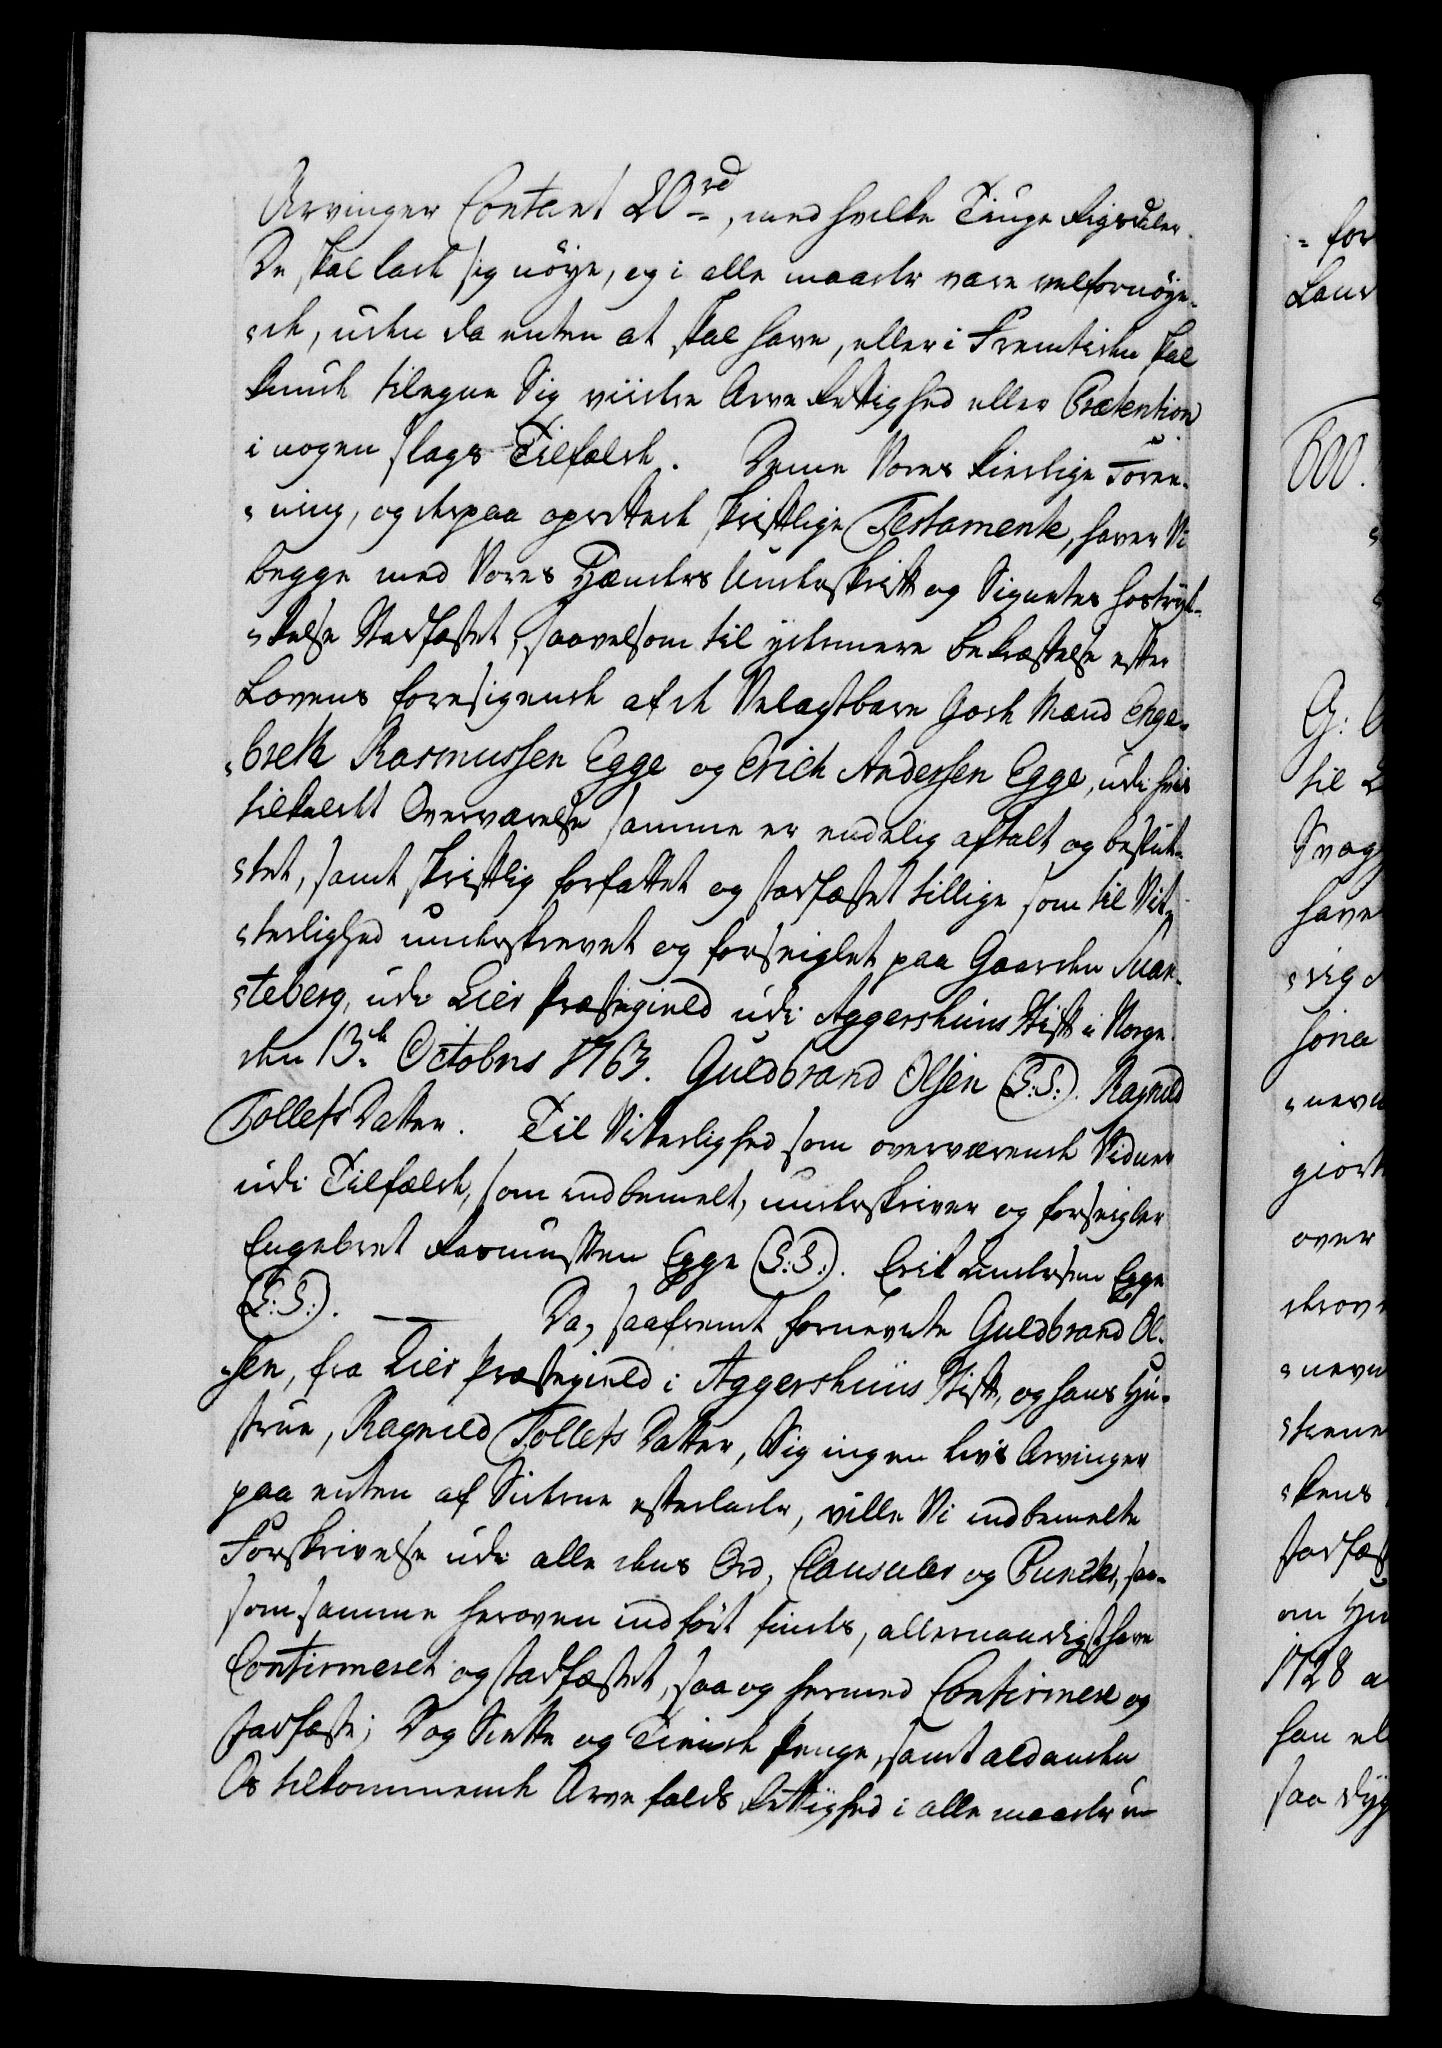 Arvinger Contant 20 rd, med hvilke Tiuge Rigsdaler
De skal lade sig nöye, og i alle maader være velfornöye-
de, uden da enten at skal have, eller i Fremtiden skal
kunde tilegne Sig viidre Arve Rettighed eller Prætention
i nogen slags Tilfælde. Denne Vores kierlige Foree-
ning, og derpaa oprettede skriftlige Testamente, haver Vi
begge med Vores Hænders Underskrift og Signeters hostryk-
kelse Stadfæstet, saavelsom til ydermere bekræftelse efter
Lovens foresigende af de Velagtbare Gode Mænd Enge-
brett Rasmussen Egge og Erich Anderssen Egge, udi hvis
tilkaldte Overværelse samme er endelig aftalt og beslut-
tet, samt skriftlig forfattet og stadfæstet tillige som til Vit-
terlighed underskrevet og forseiglet paa Gaarden
teberg, udi Lier Præstegield udi Aggershuus Stift i Norge
den 13de Octobris 1763. Guldbrand Olsen (L:S:). Ragnild
Tollefs Datter. Til Vitterlighed som overværende Vidner
udi Tilfælde, som indbemelt, underskriver og forseigler
Engebret Rasmussen Egge (L:S:). Erik Andersen Egge
(L:S:). — Da, saafremt fornevnte Guldbrand Ol-
sen, fra Lier Præstegield i Aggershuus Stift, og hans Hu-
strue, Ragnild Tollefs Datter, Sig ingen Livs Arvinger
paa enten af Siderne efterlader, ville Vi indbemelte
Forskrivelse udi alle dens Ord, Clausuler og Puncter, saa-
som samme heroven indfört findes, allernaadigst have
Confirmeret og stadfæstet, saa og hermed Confirmere og
stadfæste; Dog Siette og Tiende Penge, samt al anden
Os tilkommende Arve falds Rettighed i alle maader u-
for
600.
G:
til
have
giort
over
om Hu
1728